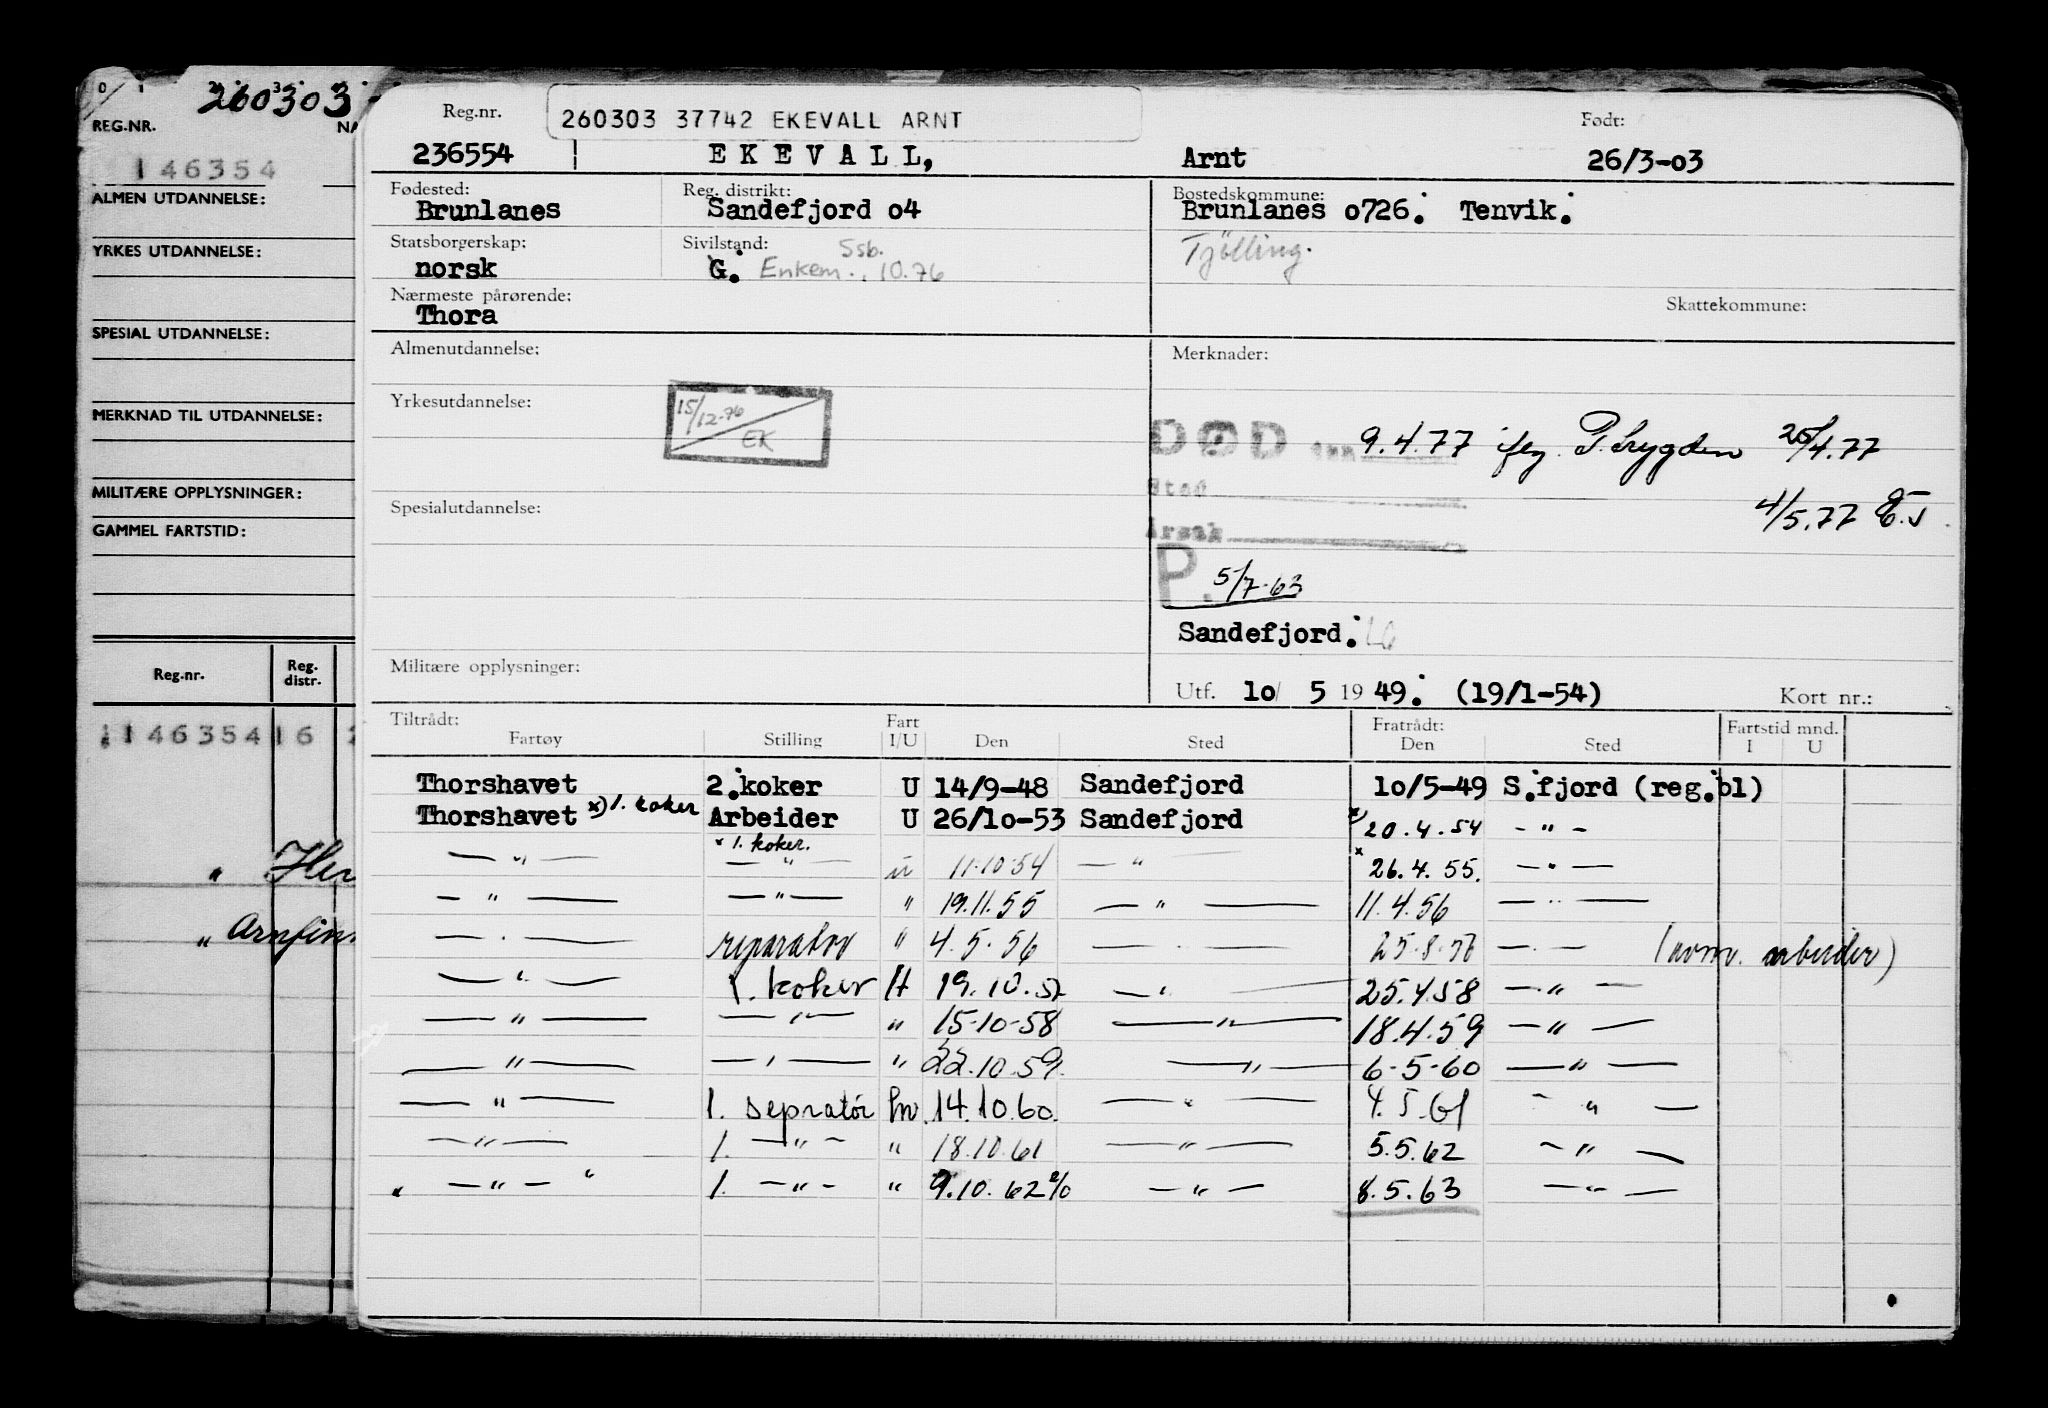 260303
REG.NR.
146354
ALMEN UTDANNELSE:
YRKES UTDANNELSE:
SPESIAL UTDANNELSE:
MERKNAD TIL UTDANNELSE:
MILITÆRE OPPLYSNINGER:
GAMMEL FARTSTID:
Reg.nr. Reg. distr.
1146354 16
" Her
" Arnfin
Reg.nr. 260303 37742 EKEVALL ARNT Født:
236554 EKEVALL, Arnt 26/3-03
Fødested: Reg. distrikt: Bostedskommune:
Brunlanes Sandefjord o4 Brunlanes o726. Tenvik.
Statsborgerskap: Sivilstand: Ssb. Tjölling.
norsk G. Enkem. 10.76
Nærmeste pårørende: Skattekommune:
Thora
Almenutdannelse: Merknader:
Yrkesutdannelse: 15/12-76 EK
DØD den 9.4.77 iflg. P.trygden 25/4.77
Sted
4/5.77 E.J
Spesialutdannelse: Årsak
P. 5/7-63
Sandefjord.
Militære opplysninger:
Utf. 1o/ 5 19 49. (19/1-54) Kort nr.:
Tiltrådt: Fart Fratrådt: Fartstid mnd.
Fartøy Stilling I/U Den Sted Den Sted I U
Thorshavet 2.koker U 14/9-48 Sandefjord 1o/5-49 S.fjord (reg.bl)
Thorshavet x) 1. koker Arbeider U 26/1o-53 Sandefjord x) 20.4.54 - " -
x 1. koker.
— " — — " — u 11.10.54 — " — x 26.4.55. — " —
— " — — " — " 19.11.55 — " — 11.4.56 — " —
— " — reparatør " 4.5.56 — " — 25.8.56 — " — (avm. arbeider)
— " — 1. koker H 19.10.57 — " — 25.4.58 — " —
— " — — " — " 15-10-58 — " — 18.4.59 — " —
— " — — " — " 22.10.59. — " — 6-5-60 — " —
— " — 1. sepratør hv. 14.10.60. — " — 4.5.61 — " —
— " — 1. — " — " 18.10.61 — " — 5.5.62 — " —
" — " — " 1. — " — " 9.10.62 — " — 8.5.63 — " —